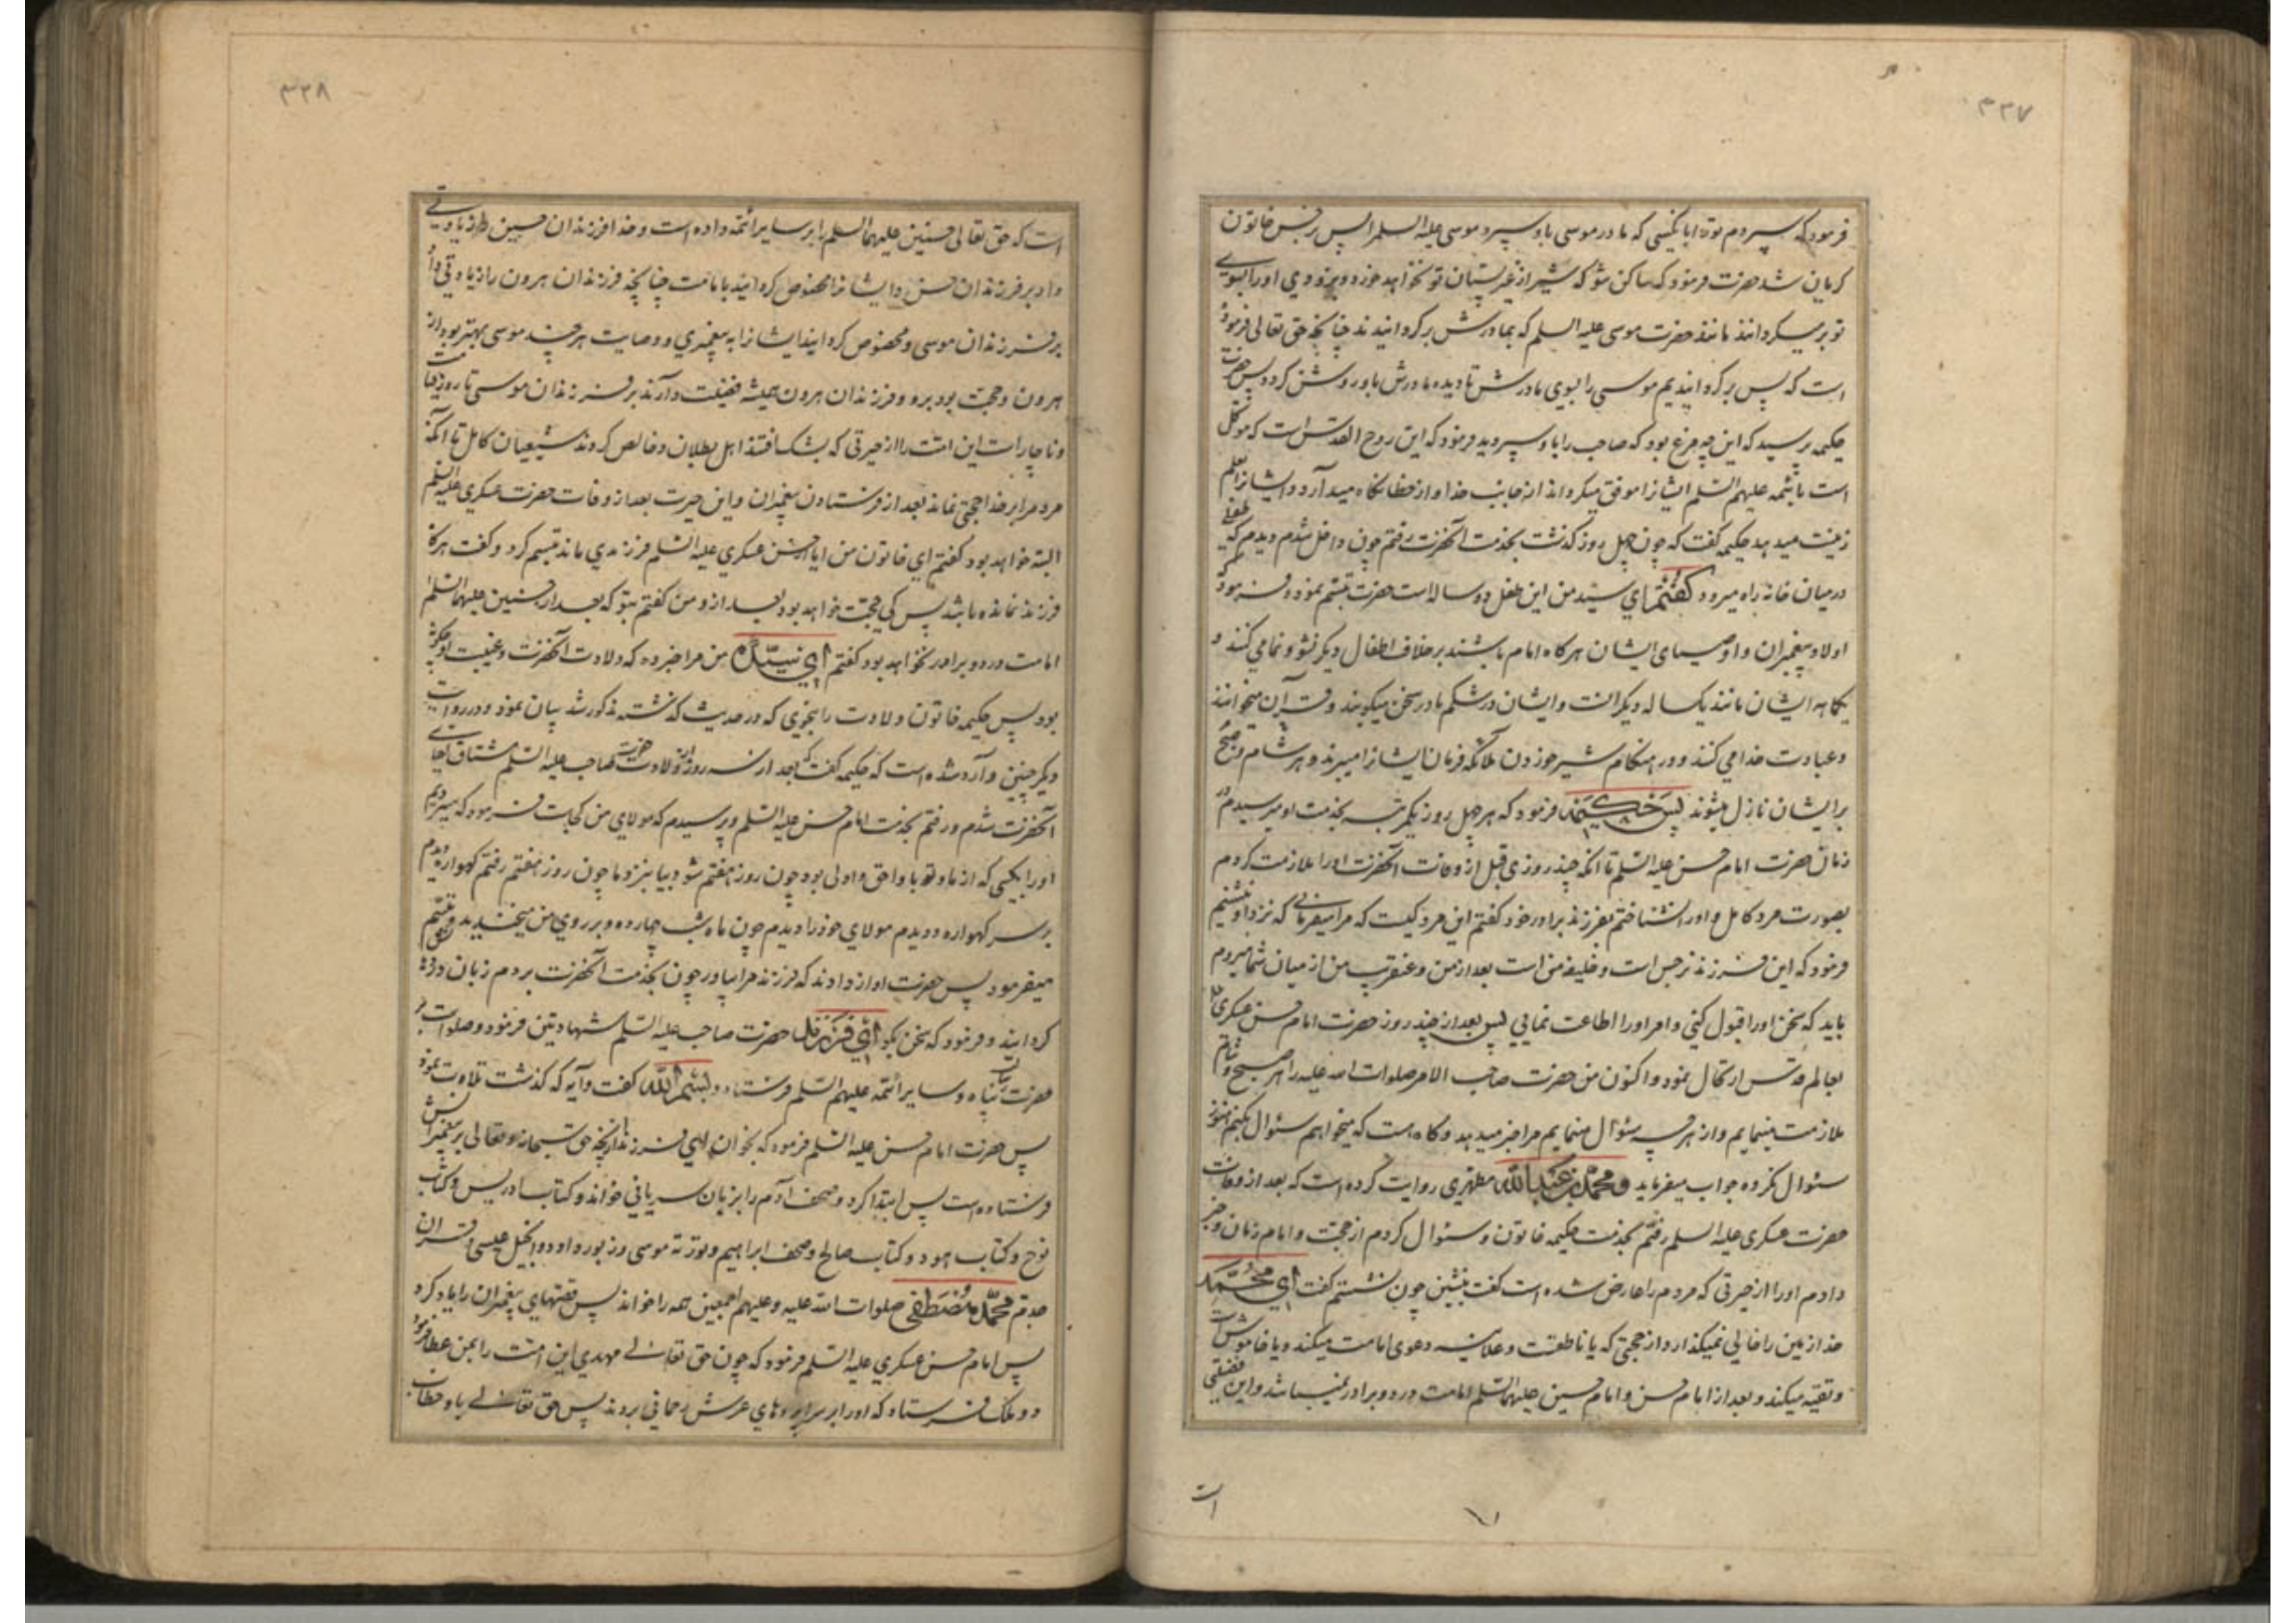 ۳۳۷
فرمود که سپردم تو را بآنکسی که مادر موسی باو سپرد موسی علیه السلم را پس نرجس خاتون
گریان شد حضرت فرمود که ساکن شو که شیر از غیر پستان تو نخواهد خورد و بزودی او را بسوی
تو بر میگردانند مانند حضرت موسی علیه السلم که بمادرش برگردانیدند چنانچه حق تعالی فرموده
است که پس برگردانیدیم موسی را بسوی مادرش تا دیده مادرش باو روشن گردد پس حضرت
حکیمه پرسید که این چه مرغ بود که صاحب را باو سپردید فرمود که این روح القدس است که موکل
است بائمه علیهم السلم ایشانرا موفق میگرداند از جانب خدا و از خطا نگاه میدارد و ایشانرا بعلم
زینت میدهد حکیمه گفت که چون چهل روز گذشت بخدمت آنحضرت رفتم چون داخل شدم دیدم که طفلی
در میان خانه راه میرود گفتم ای سید من این طفل دو ساله است حضرت تبسم نمود و فرمود که
اولاد پیغمبران و اوصیای ایشان هرگاه امام باشند بر خلاف اطفال دیگر نشو و نما می کنند و
یکماهه ایشان مانند یکساله دیگرانست و ایشان در شکم مادر سخن میگویند و قرآن میخوانند
و عبادت خدا می کنند و در هنگام شیر خوردن ملائکه فرمان ایشانرا میبرند و هر صبح و شام
بر ایشان نازل میشوند پس حکیمه فرمود که هر چهل روز یکمرتبه بخدمت او میرسیدم در
زمان حضرت امام حسن علیه السلم تا آنکه چند روزی قبل از وفات آنحضرت او را ملازمت کردم
بصورت مرد کامل و او را نشناختم بفرزند برادر خود گفتم این مرد کیست که مرا میفرمائی که نزد او بنشینم
فرمود که این فرزند نرجس است و خلیفه من است بعد از من و عنقریب من از میان شما میروم
باید که سخن او را قبول کنی و امر او را اطاعت نمایی پس بعد از چند روز حضرت امام حسن عسکری
بعالم قدس ارتحال نمود و اکنون من حضرت صاحب الامر صلوات الله علیه را هر صبح و شام
ملازمت مینمایم و از هر چه سئوال مینمایم مرا خبر میدهد و گاه است که میخواهم سئوال بکنم هنوز
سئوال نکرده جواب میفرماید و محمد بن عبدالله مطهری روایت کرده است که بعد از وفات
حضرت عسکری علیه السلم رفتم بخدمت حکیمه خاتون و سئوال کردم از حجت و امام زمان و خبر
دادم او را از حیرتی که مردم را عارض شده است گفت بنشین چون نشستم گفت ای محمد
خدا زمین را خالی نمیگذارد از حجتی که یا ناطقست و علانیه دعوی امامت میکند و یا خاموش است
و تقیه میکند و بعد از امام حسن و امام حسین علیهما السلم امامت در دو برادر نمیباشد و این فضلتی
است
۳۳۸
است که حق تعالی حسنین علیهما السلم را بر سایر ائمه داده است و خدا فرزندان حسین را زیادتی
داد بر فرزندان حسن و ایشانرا مخصوص گردانید بامامت چنانچه فرزندان هرون را زیادتی داد
بر فرزندان موسی و مخصوص گردانید ایشانرا به پیغمبری و وصایت هر چند موسی بهتر بود از
هرون و حجت بود برو و فرزندان هرون همیشه فضیلت دارند بر فرزندان موسی تا روز قیامت
و ناچار است این امت را از حیرتی که بشک افتند اهل بطلان و خالص گردند شیعیان کامل تا آنکه
مردم را بر خدا حجتی نماند بعد از فرستادن پیغمبران و این حیرت بعد از وفات حضرت عسکری علیه السلم
البته خواهد بود گفتم ای خاتون من ایا از حسن عسکری علیه السلم فرزندی ماند تبسم کرد و گفت هرگاه
فرزند نمانده باشد پس کی حجت خواهد بود بعد ازو من گفتم بتو که بعد از حسنین علیهما السلم
امامت در دو برادر نخواهد بود گفتم ای سیده من مرا خبر ده که ولادت آنحضرت و غیبت او چگونه
بود پس حکیمه خاتون ولادت را بنحوی که در حدیث گذشته مذکور شد بیان نمود و در روایت
دیگر چنین وارد شده است که حکیمه گفت که بعد از سه روز از ولادت حضرت صاحب علیه السلم مشتاق لقای
آنحضرت شدم و رفتم بخدمت امام حسن علیه السلم و پرسیدم که مولای من کجاست فرمود که سپردیم
او را بکسی که از ما و تو باو احق و اولی بود چون روز هفتم شود بیا بنزد ما چون روز هفتم رفتم گهواره دیدم
بر سر گهواره دویدم مولای خود را دیدم چون ماه شب چهارده و بر روی من میخندید و تبسم
میفرمود پس حضرت اواز دادند که فرزند مرا بیاور چون بخدمت آنحضرت بردم زبان در دهانش
گردانید و فرمود که سخن بگو ای فرزند حضرت صاحب علیه السلم شهادتین فرمود و صلوات بر
حضرت رسالت پناه و سایر ائمه علیهم السلم فرستاد و بسم الله گفت و آیه که گذشت تلاوت نمود
پس حضرت امام حسن علیه السلم فرمود که بخوان ای فرزند از آنچه حق سبحانه و تعالی بر پیغمبرانش
فرستاده است پس ابتدا کرد و صحف آدم را بزبان سریانی خواند و کتاب ادریس و کتاب
نوح و کتاب هود و کتاب صالح و صحف ابراهیم و تورته موسی و زبور داود و انجیل عیسی و قران
جدم محمد مصطفی صلوات الله علیه و علیهم اجمعین همه را خواند پس قصهای پیغمبران را یاد کرد
پس امام حسن عسکری علیه السلم فرمود که چون حق تعالی مهدی این امت را بمن عطا فرمود
دو ملک فرستاد که او را بسراپرده‌های عرش رحمانی بردند پس حق تعالی باو خطاب